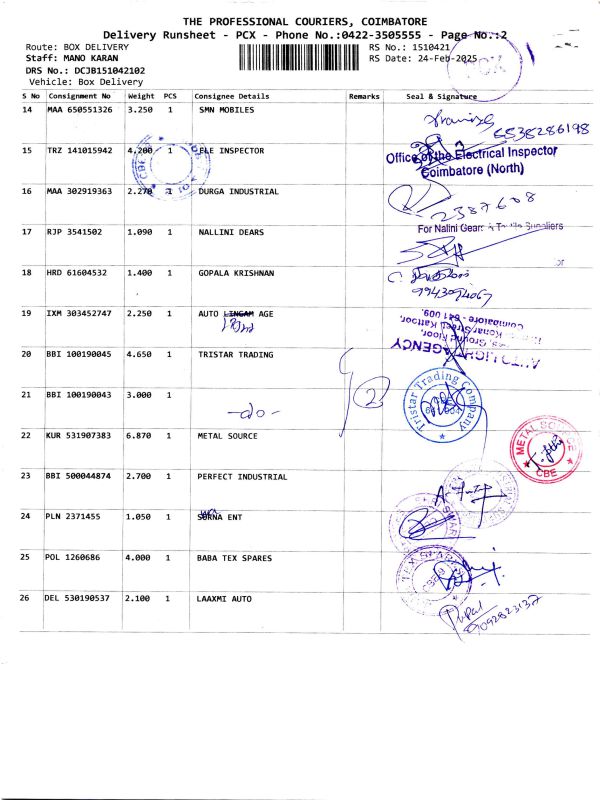 THE PROFESSIONAL COURIERS, COIMBATORE
Delivery Runsheet - PCX - Phone No.:0422-3505555 - Page No.:2
Route: BOX DELIVERY RS No.: 1510421
Staff: MANO KARAN RS Date: 24-Feb-2025
DRS No.: DCJB151042102
Vehicle: Box Delivery
S No Consignment No Weight PCS Consignee Details Remarks Seal & Signature
14 MAA 650551326 3.250 1 SMN MOBILES
6538286198
15 TRZ 141015942 4.200 1 ELE INSPECTOR
Office of the Electrical Inspector
Coimbatore (North)
16 MAA 302919363 2.270 1 DURGA INDUSTRIAL
2387608
17 RJP 3541502 1.090 1 NALLINI DEARS
For Nalini Gears & Textile Suppliers
18 HRD 61604532 1.400 1 GOPALA KRISHNAN
9943094067
19 IXM 303452747 2.250 1 AUTO LINGAM AGE
AUTO LIGHT AGENCY
Ground Floor,
Konar Street, Kattoor,
Coimbatore - 641 009.
20 BBI 100190045 4.650 1 TRISTAR TRADING
2
Tristar Trading Company
21 BBI 100190043 3.000 1
-do-
22 KUR 531907383 6.870 1 METAL SOURCE
METAL SOURCE
CBE
23 BBI 500044874 2.700 1 PERFECT INDUSTRIAL
24 PLN 2371455 1.050 1 SORNA ENT
25 POL 1260686 4.000 1 BABA TEX SPARES
26 DEL 530190537 2.100 1 LAAXMI AUTO
9092823137